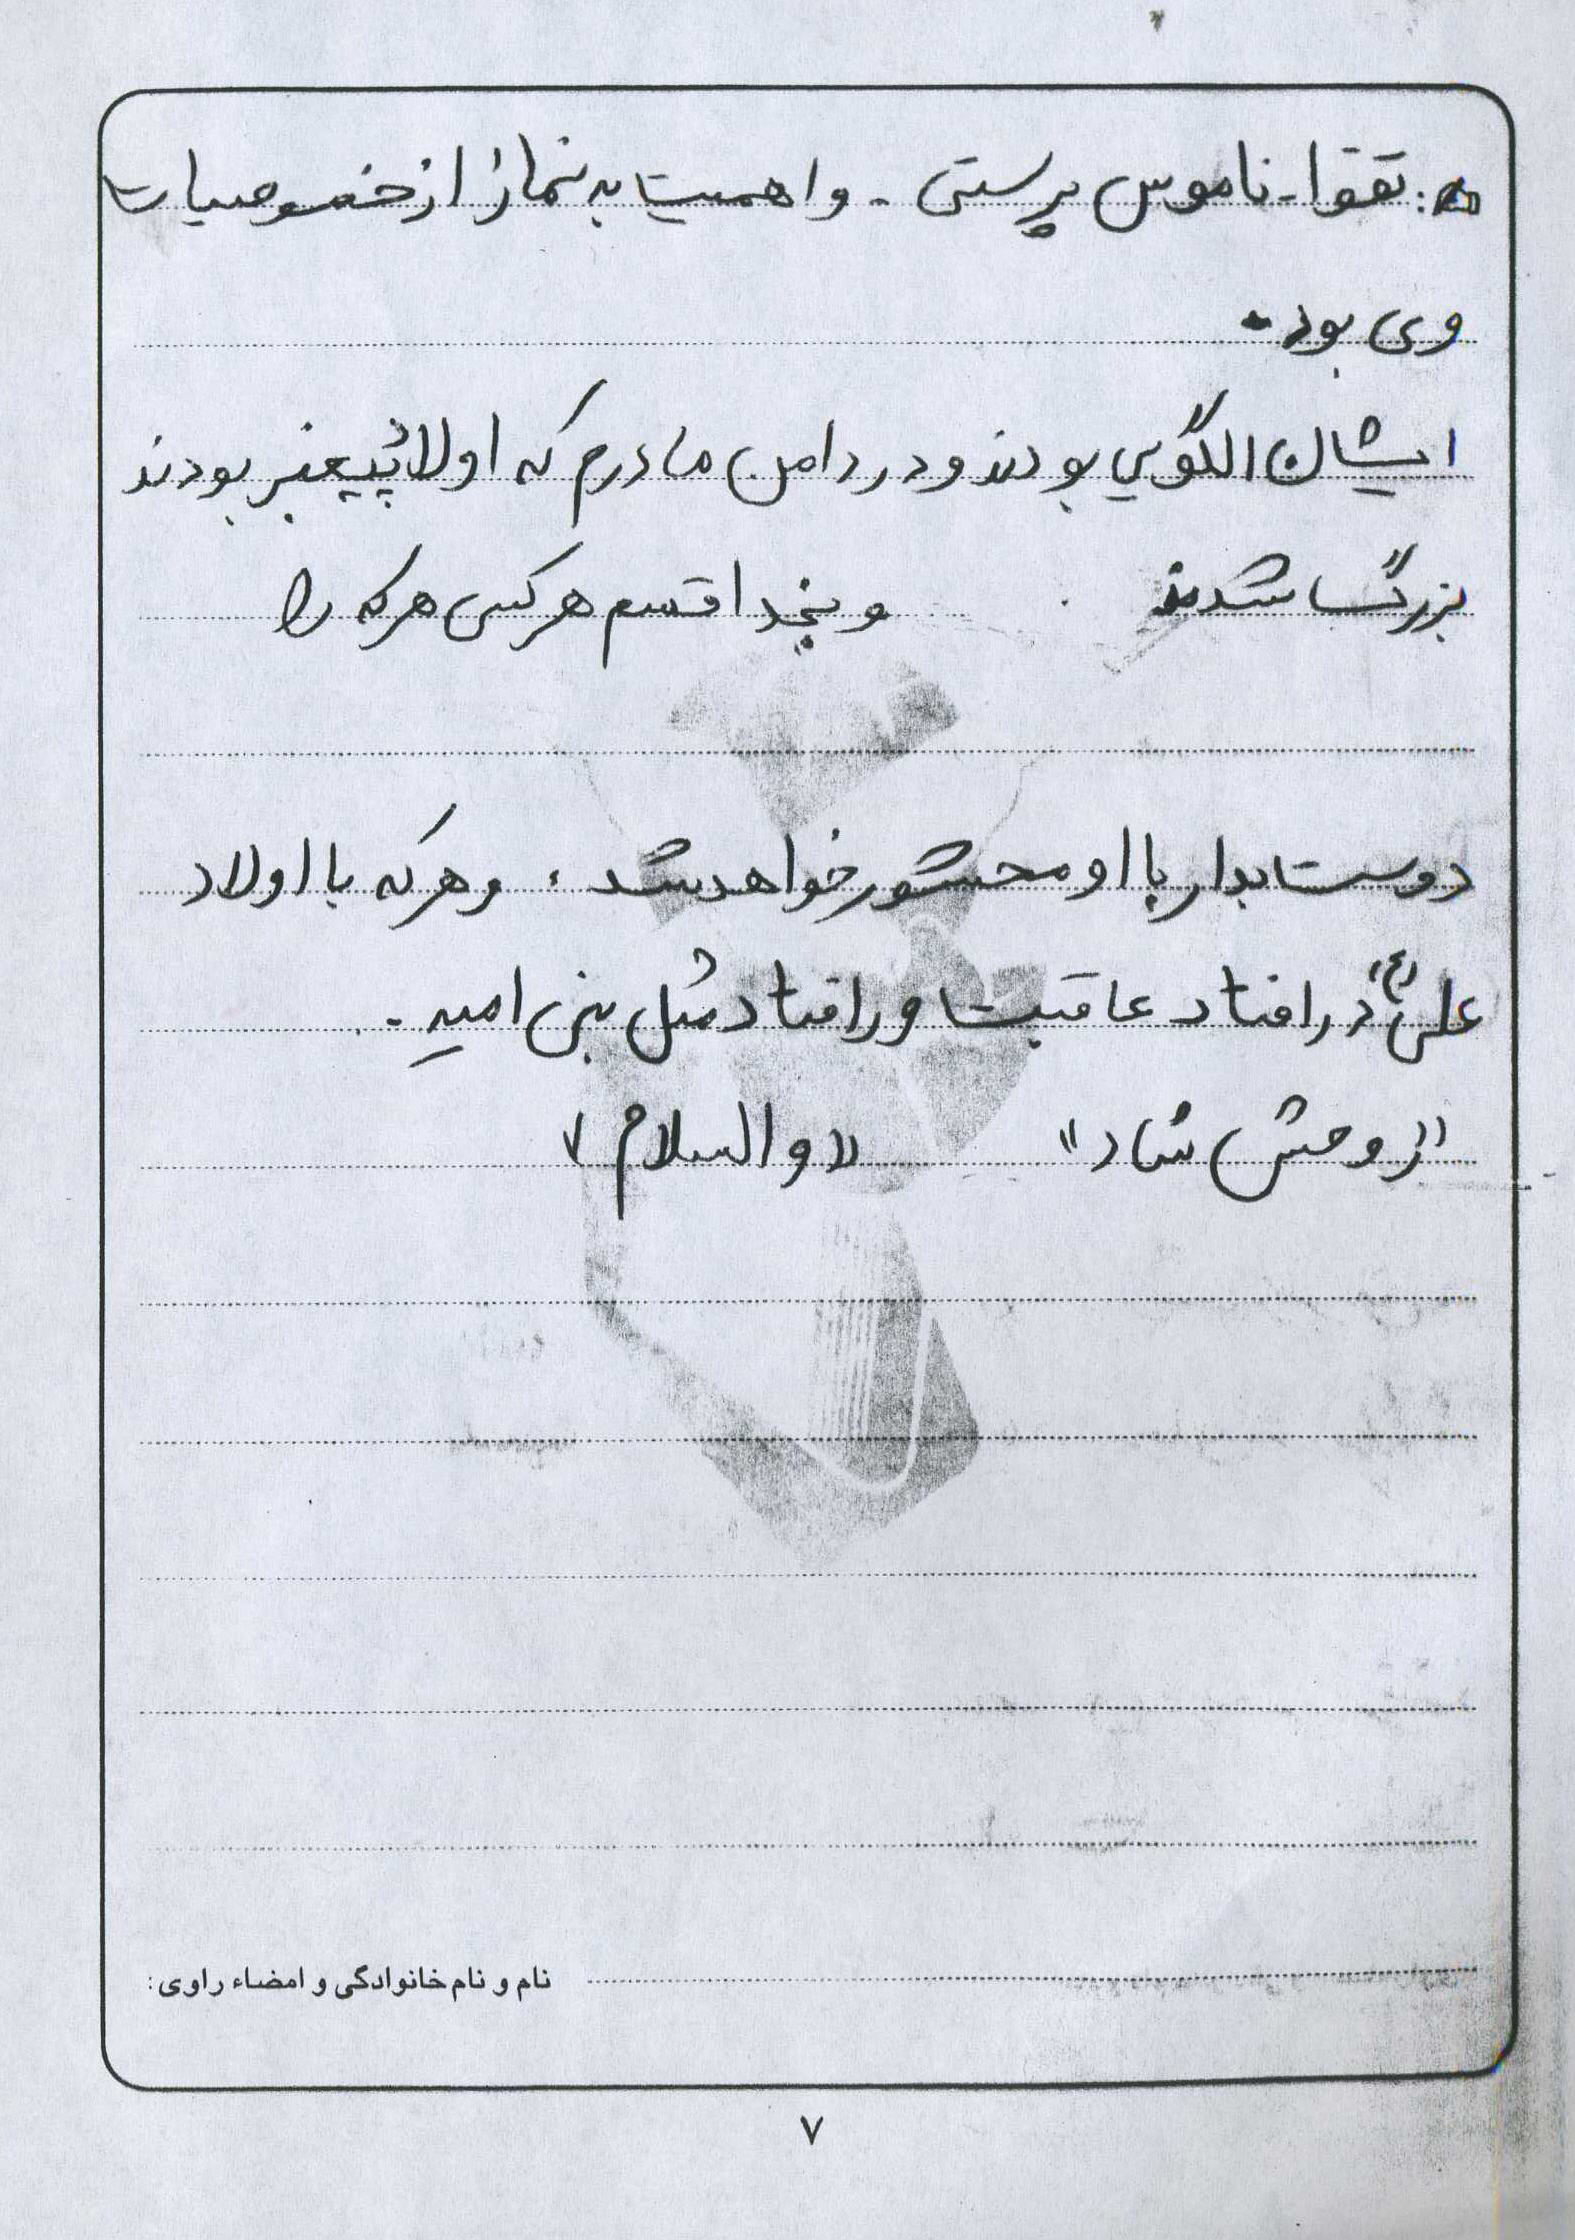 : تقوا - ناموس پرستی - و اهمیت به نماز از خصوصیات
وی بود.
ایشان الگویی بودند و در دامن مادرم که اولاد پیغمبر بودند
بزرگ شدند و بخدا قسم هر کس هر که را
دوست بدارد با او محشور خواهد شد، و هر که با اولاد
علی (ع) در افتاد عاقبت ور افتاد مثل بنی امیه.
"روحش شاد" "والسلام"
نام و نام خانوادگی و امضاء راوی:
۷